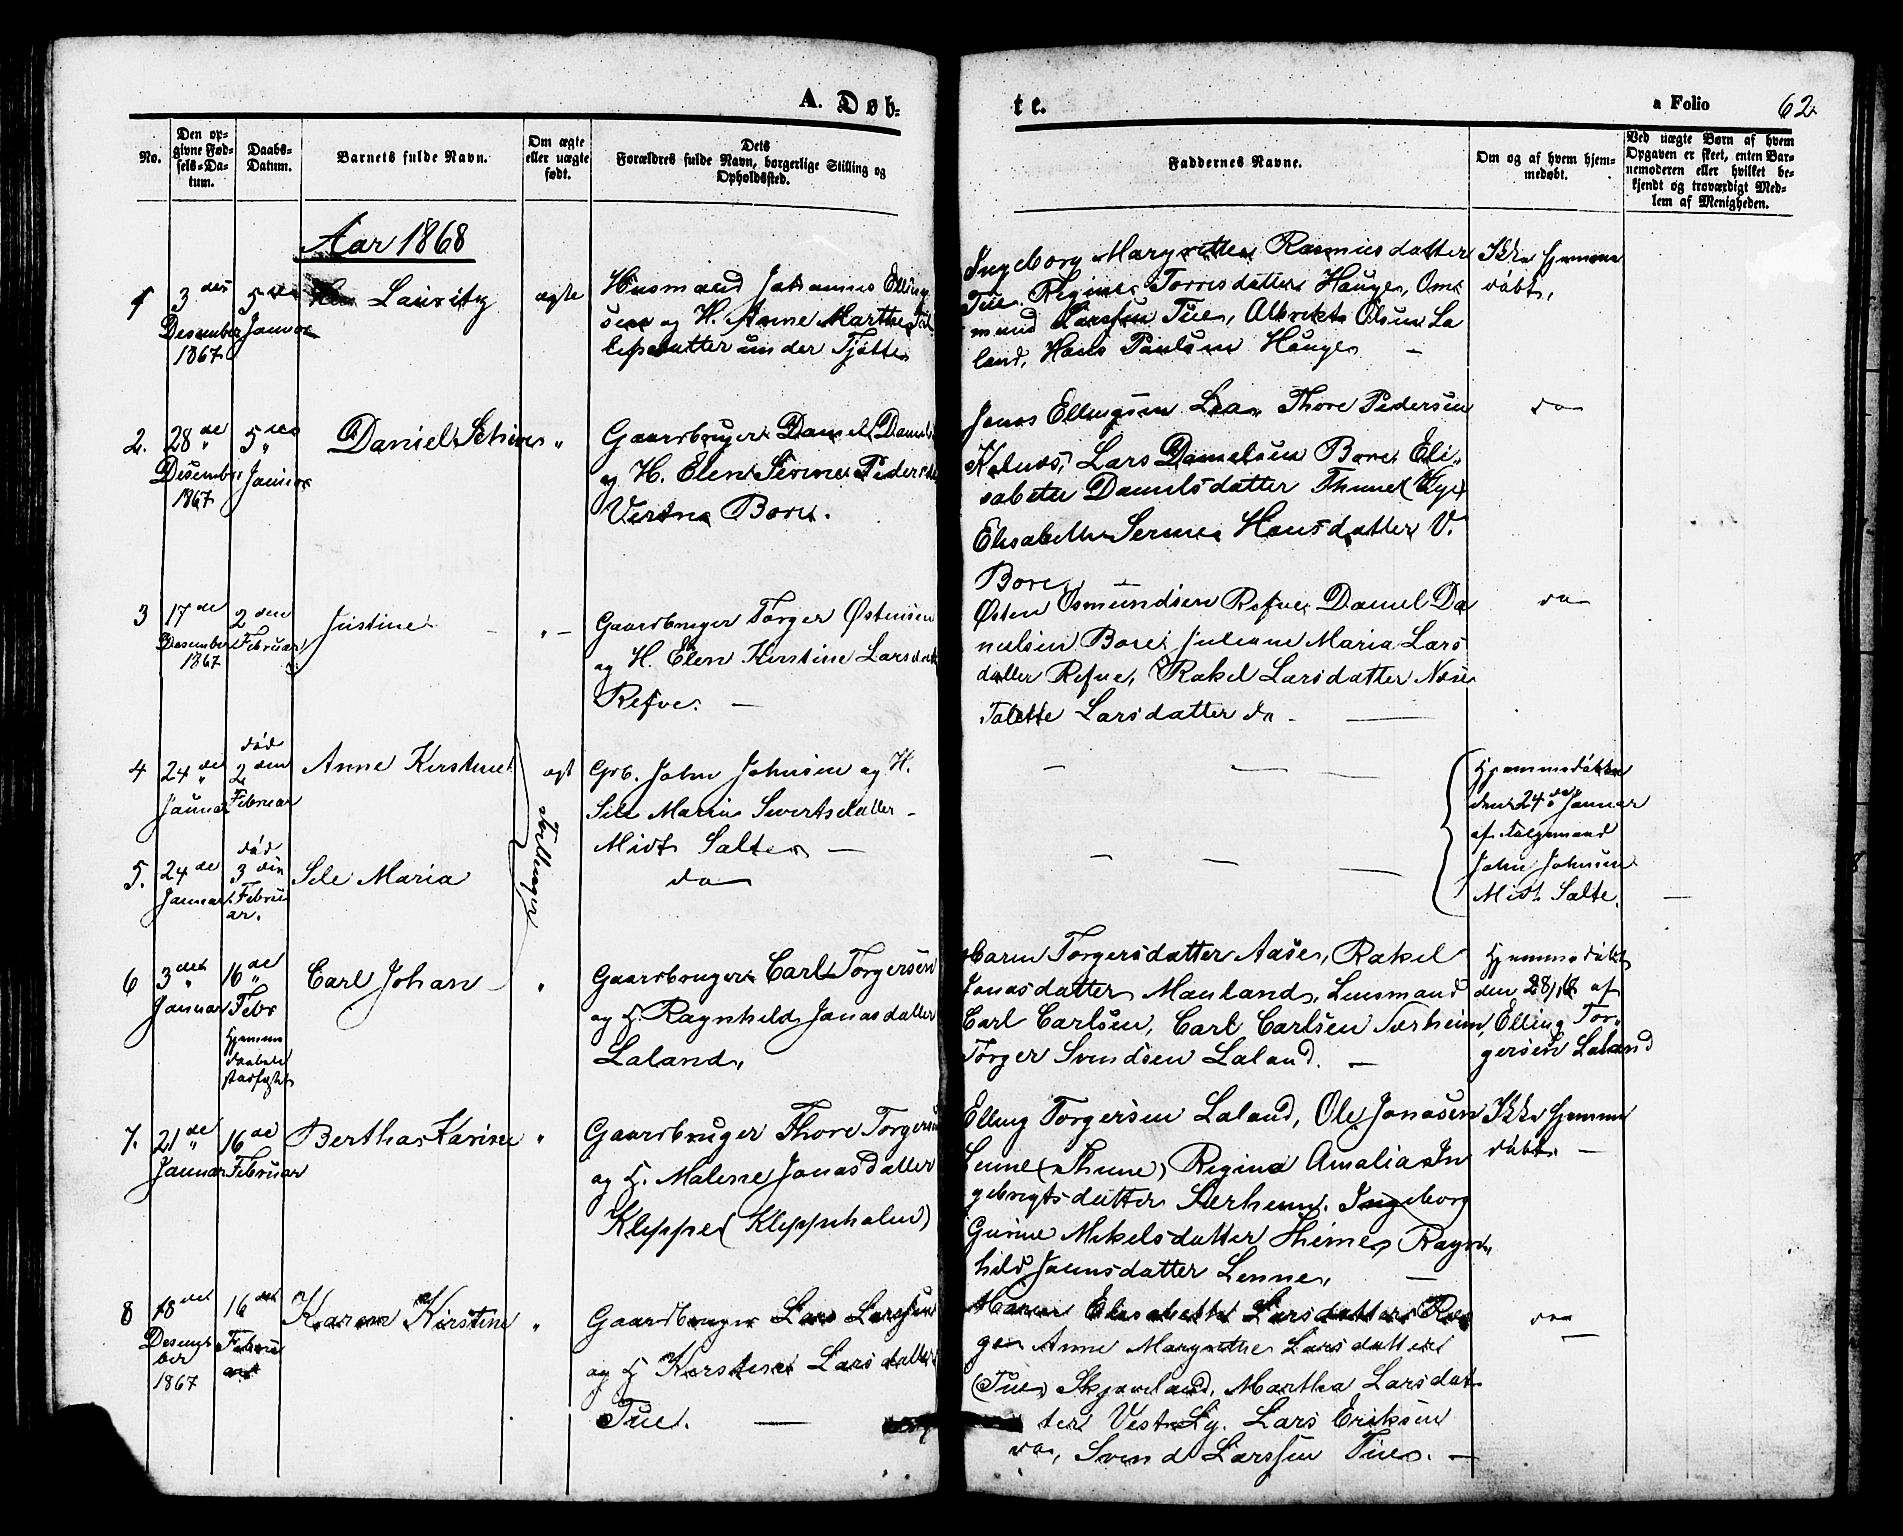 A. Døb-
te.
a Folio 62.
No.
Den op-
givne Fød-
sels-Da-
tum.
Daabs-
Datum.
Barnets fulde Navn.
Om ægte
eller uægte
født.
Dets
Forældres fulde Navn, borgerlige Stilling og
Opholdssted.
Faddernes Navne.
Om og af hvem hjem-
medøbt.
Ved uægte Børn af hvem
Opgaven er skeet, enten Bar-
nemoderen eller hvilket be-
kjendt og troværdigt Med-
lem af Menigheden.
Aar 1868
1
3 det
Desember
1867
5 te
Januar
Lauritz
ægte
Husmand Johannes Elling
sen og H. Anne Marthe
lipsdatter under Tjøtte
Ingeborg Margrethe Rasmusdatter
Tue. Regine Torresdatter Hauge, Om
mund Larssen Tue, Albrikt Olsen La
land, Hans Paulsen Hauge —
Ikke hjemme
døbt,
2.
28 de
Desember
1867
5 te
Januar
Daniel Sehius
"
Gaardbruger Daniel Daniels
og H. Elen Serine Peders
Vestre Bore.
Jonas Ellingsen Lea, Thore Pedersen
Kalnes, Lars Danielsen Bore, Eli-
sabeth Danielsdatter Thune (Kye)
Elisabeth Serine Hansdatter V.
Bore,
do
3
17 de
Desember
1867
2 den
Februar
Justine
" —
Gaardbruger Torger Østensen
og H. Elen Kirstine Larsdat
Refve. —
Østen Osmundsen Refve, Daniel Da
nielsen Bore, Juliane Maria Lars
datter Refve, Rakel Larsdatter Næse
Talette Larsdatter do —
do
4
24 de
Januar
død
2 den
Februar
Anne Kirstine
Tvillinger
ægt
Grb. John Johnsen og H.
Sile Maria Sivertsdatter —
Midt Salte —
— — —
Hjemmedøbt
den 24 de Januar
af Faugmand
John Johnsen
Midt Salte.
5.
24 de
Januar
død
3 die
Febru
ar.
Sile Maria
do
— — —
6
3 det
Januar
16 de
Febr
Hjemme
daaben
stadfæstet
Carl Johan —
"
Gaardbruger Carl Torgersen
og H. Ragnhild Jonasdatter
Laland,
Karen Torgersdatter Aase, Rakel
Jonasdatter Mauland, Lensmand
Carl Carlsen, Carl Carlsen Særheim,
Torger Svendsen Laland. —
Hjemmedøbt
den af
Elling Tor-
gersen Laland
7.
21 de
Januar
16 de
Februar
Bertha Karine
"
Gaardbruger Thore Torgersen
og H. Malene Jonasdatter
Kleppe (Kleppholen)
Elling Torgersen Laland, Ole Jonasen
Lenne (Thune) Regina Amalia In
gebrigtsdatter Særheim. Ingeborg
Gurine Mikelsdatter Heime, Ragn-
hild Jonasdatter Lenne, —
Ikke hjemme
døbt. —
8
18 det
Desem
ber
1867
16 det
Febru
ar
Karen Kirstine
"
Gaardbruger Lars Larssen
og H Kirstine Larsdatter
Tue. —
Maren Elisabeth Larsdatter Ræ
ge Anne Margrethe Larsdatter
(Tue) Skjæveland, Martha Larsdat
ter Vest Ly. Lars Eriksen
do, Svend Larssen Tue. —
do
—